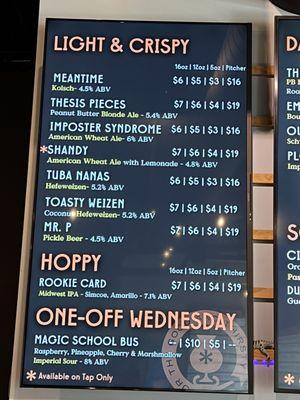 LIGHT & CRISPY
16oz | 12oz | 5oz | Pitcher
MEANTIME $6 | $5 | $3 | $16
Kolsch- 4.5% ABV
THESIS PIECES $7 | $6 | $4 | $19
Peanut Butter Blonde Ale - 5.4% ABV
IMPOSTER SYNDROME $6 | $5 | $3 | $16
American Wheat Ale- 6% ABV
*SHANDY $7 | $6 | $4 | $19
American Wheat Ale with Lemonade - 4.8% ABV
TUBA NANAS $6 | $5 | $3 | $16
Hefeweizen- 5.2% ABV
TOASTY WEIZEN $7 | $6 | $4 | $19
Coconut Hefeweizen- 5.2% ABV
MR. P $7 | $6 | $4 | $19
Pickle Beer - 4.5% ABV
HOPPY
16oz | 12oz | 5oz | Pitcher
ROOKIE CARD $7 | $6 | $4 | $19
Midwest IPA - Simcoe, Amarillo - 7.1% ABV
ONE-OFF WEDNESDAY
MAGIC SCHOOL BUS -- | $10 | $5 | --
Raspberry, Pineapple, Cherry & Marshmallow
Imperial Sour - 8% ABV
* Available on Tap Only